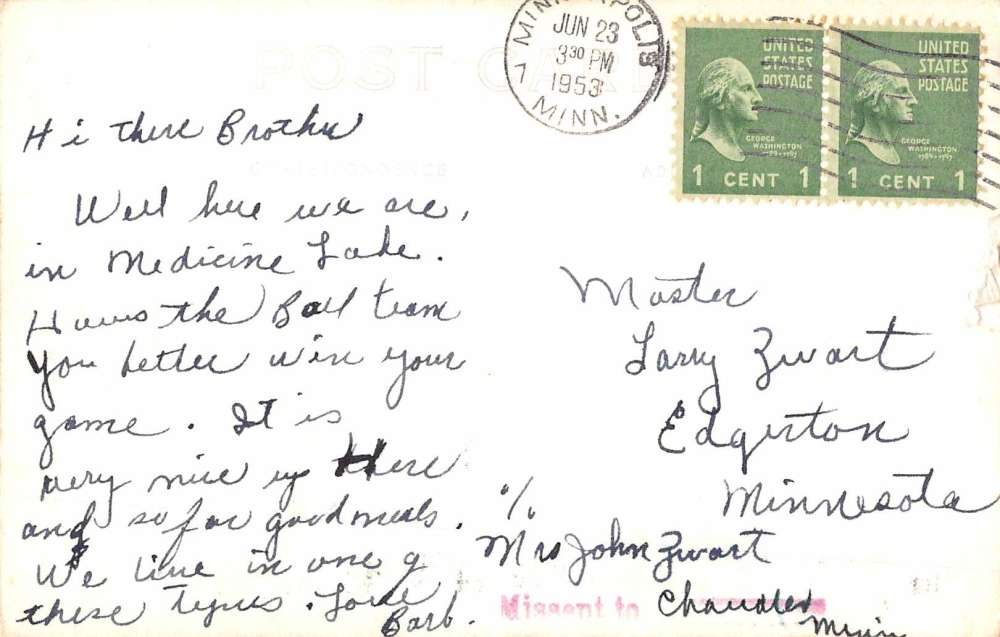 POST CARD
MINNEAPOLIS
JUN 23
3 30 PM
1953
MINN.
UNITED
STATES
POSTAGE
GEORGE
WASHINGTON
1789-1797
1 CENT 1
UNITED
STATES
POSTAGE
GEORGE
WASHINGTON
1789-1797
1 CENT 1
Hi there Brother
Well here we are,
in Medicine Lake.
Hows the Ball team
You better win your
game. It is
very nice up Here
and so far good meals.
We live in one of
these types. Love
Barb.
Master
Larry Zwart
Edgerton
Minnesota
c/o
Mrs John Zwart
Missent to Chandler
Minn